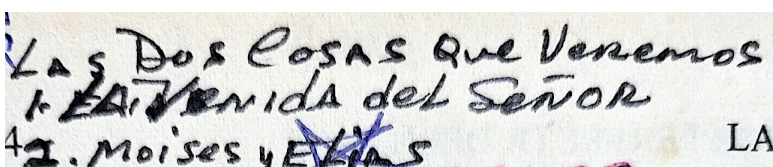 Las Dos Cosas que Veremos
1. LA VENIDA del SEÑOR
42. Moises y Elias LA